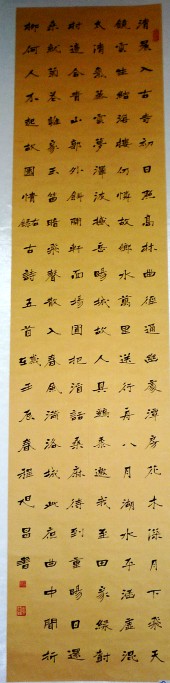 清晨入古寺初日照高林曲徑通幽處禪房花木深月下飛天
鏡雲生結海樓仍憐故鄉水萬里送行舟八月湖水平涵虛混
太清氣蒸雲夢澤波撼岳陽城故人具鷄黍邀我至田家綠樹
村邊合青山郭外斜開軒面場圃把酒話桑麻待到重陽日還
來就菊花誰家玉笛暗飛聲散入春風滿洛城此夜曲中聞折
柳何人不起故園情 錄古詩五首 歲在 春 旭昌書